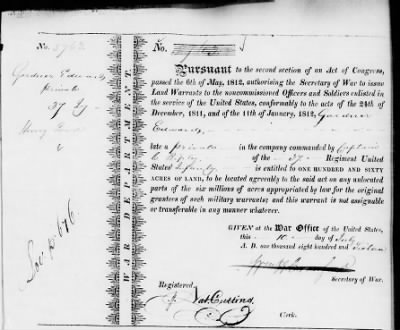 No.
Gardner Edwards
private
37
No.
Pursuant to the second section of an Act of Congress,
passed the 6th of May, 1812, authorising the Secretary of War to issue
Land Warrants to the noncommissioned Officers and Soldiers enlisted in
the service of the United States, conformably to the acts of the 24th of
December, 1811, and of the 11th January, 1812, Gardner
Edwards
late a private in the company commanded by Captain
of the 37 Regiment United
States Infantry is entitled to ONE HUNDRED AND SIXTY
ACRES OF LAND, to be located agreeably to the said act on any unlocated
parts of the six millions of acres appropriated by law for the original
grantees of such military warrants; and this warrant is not assignable
or transferable in any manner whatever.
GIVEN at the War Office of the United States,
this 10 day of July
A. D. one thousand eight hundred and sixteen
Secretary of War.
Registered
Nat. Cutting,
Clerk.
WAR DEPARTMENT.